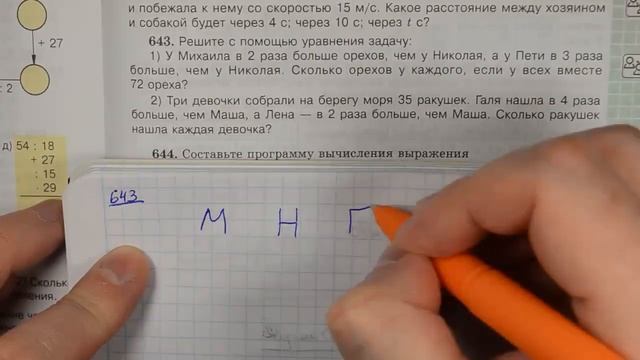 и побежала к нему со скоростью 15 м/с. Какое расстояние между хозяином
и собакой будет через 4 с; через 10 с; через t с?
643. Решите с помощью уравнения задачу:
1) У Михаила в 2 раза больше орехов, чем у Николая, а у Пети в 3 раза
больше, чем у Николая. Сколько орехов у каждого, если у всех вместе
72 ореха?
2) Три девочки собрали на берегу моря 35 ракушек. Галя нашла в 4 раза
больше, чем Маша, а Лена — в 2 раза больше, чем Маша. Сколько ракушек
нашла каждая девочка?
644. Составьте программу вычисления выражения
+ 27
: 2
д) 54 : 18
+ 27
: 15
· 29
2) Сколько
643
М Н Г